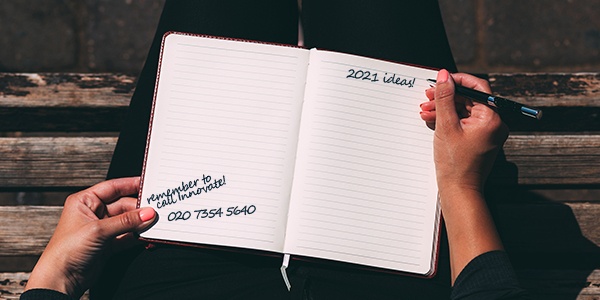 remember to
call Innovate!
020 7354 5640
2021 ideas!